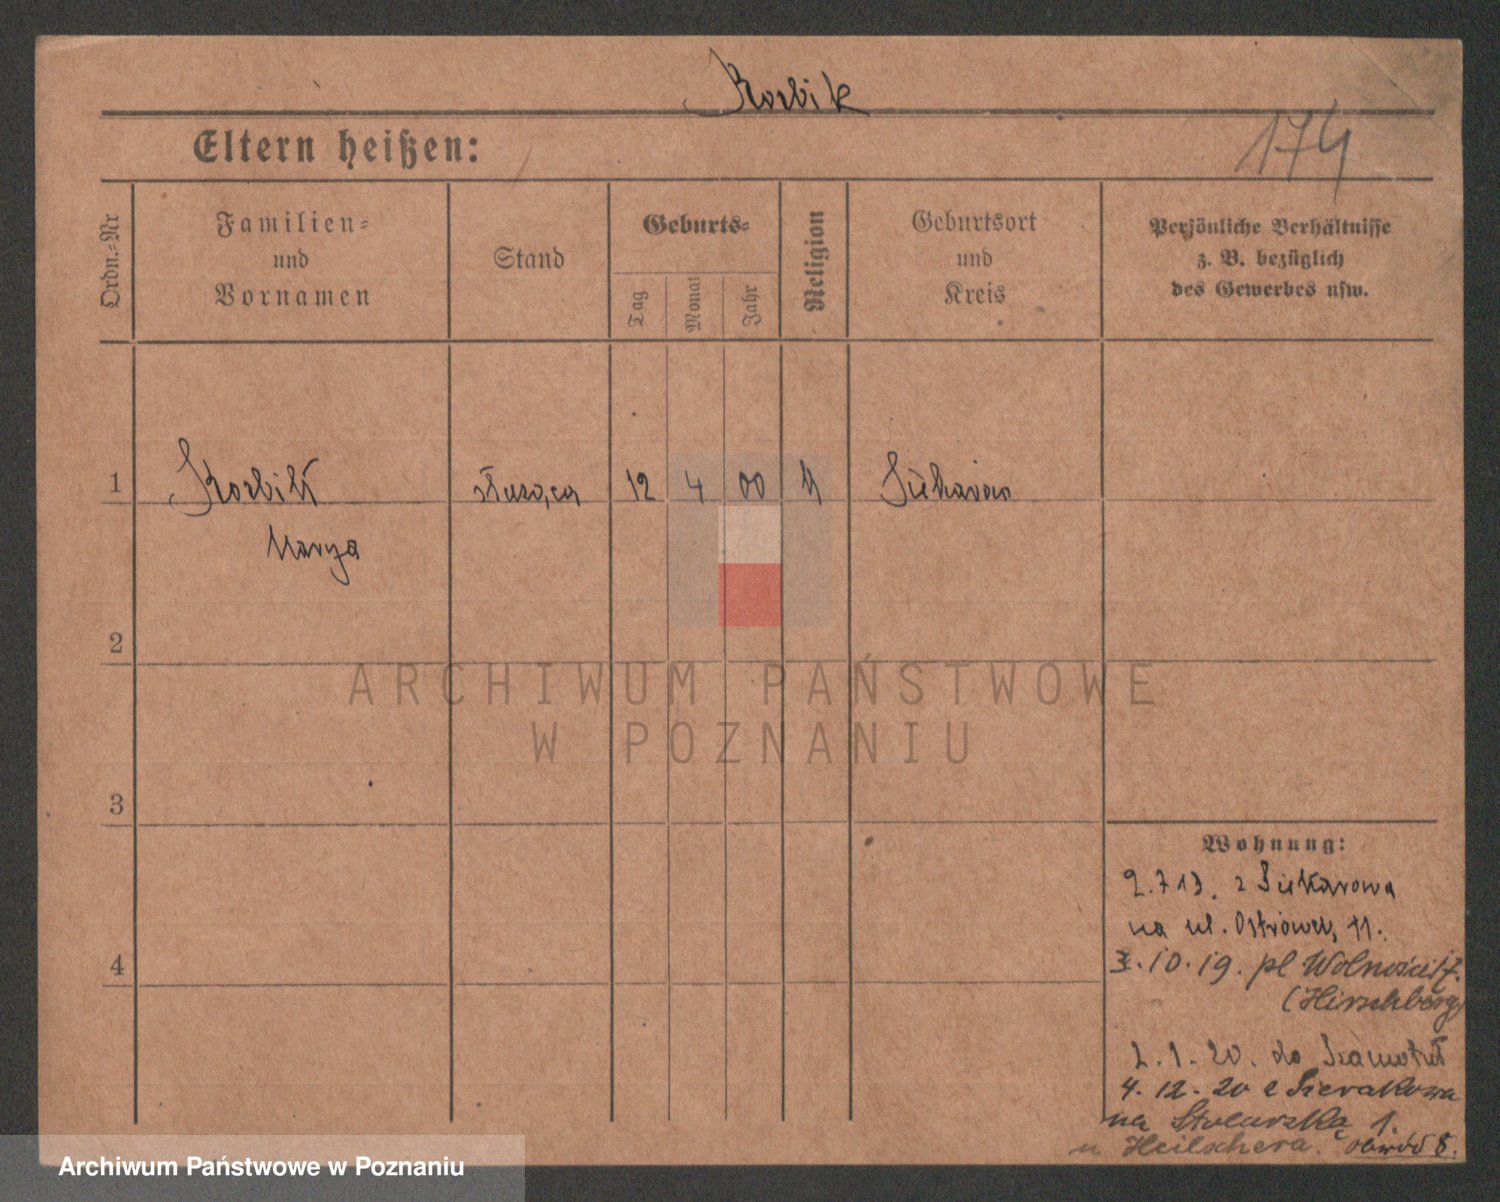 Korbik
174
Eltern heißen:
Ordn.-Nr
Familien-
und
Vornamen
Stand
Geburts-
Tag
Monat
Jahr
Religion
Geburtsort
und
Kreis
Persönliche Verhältnisse
z. B. bezüglich
des Gewerbes usw.
1
Korbik
służąca
12
4
00
Marya
2
ARCHIWUM PAŃSTWOWE
W POZNANIU
3
Wohnung:
2.7 19. z
na ul. Ostrówek 11.
4
3.10.19. pl Wolności 17.
(Hirschberg)
2.1.20. do Szamotuł
4.12.20 z Sierakowa
na Stolarską 1.
u Heilschera. obwód 8.
Archiwum Państwowe w Poznaniu